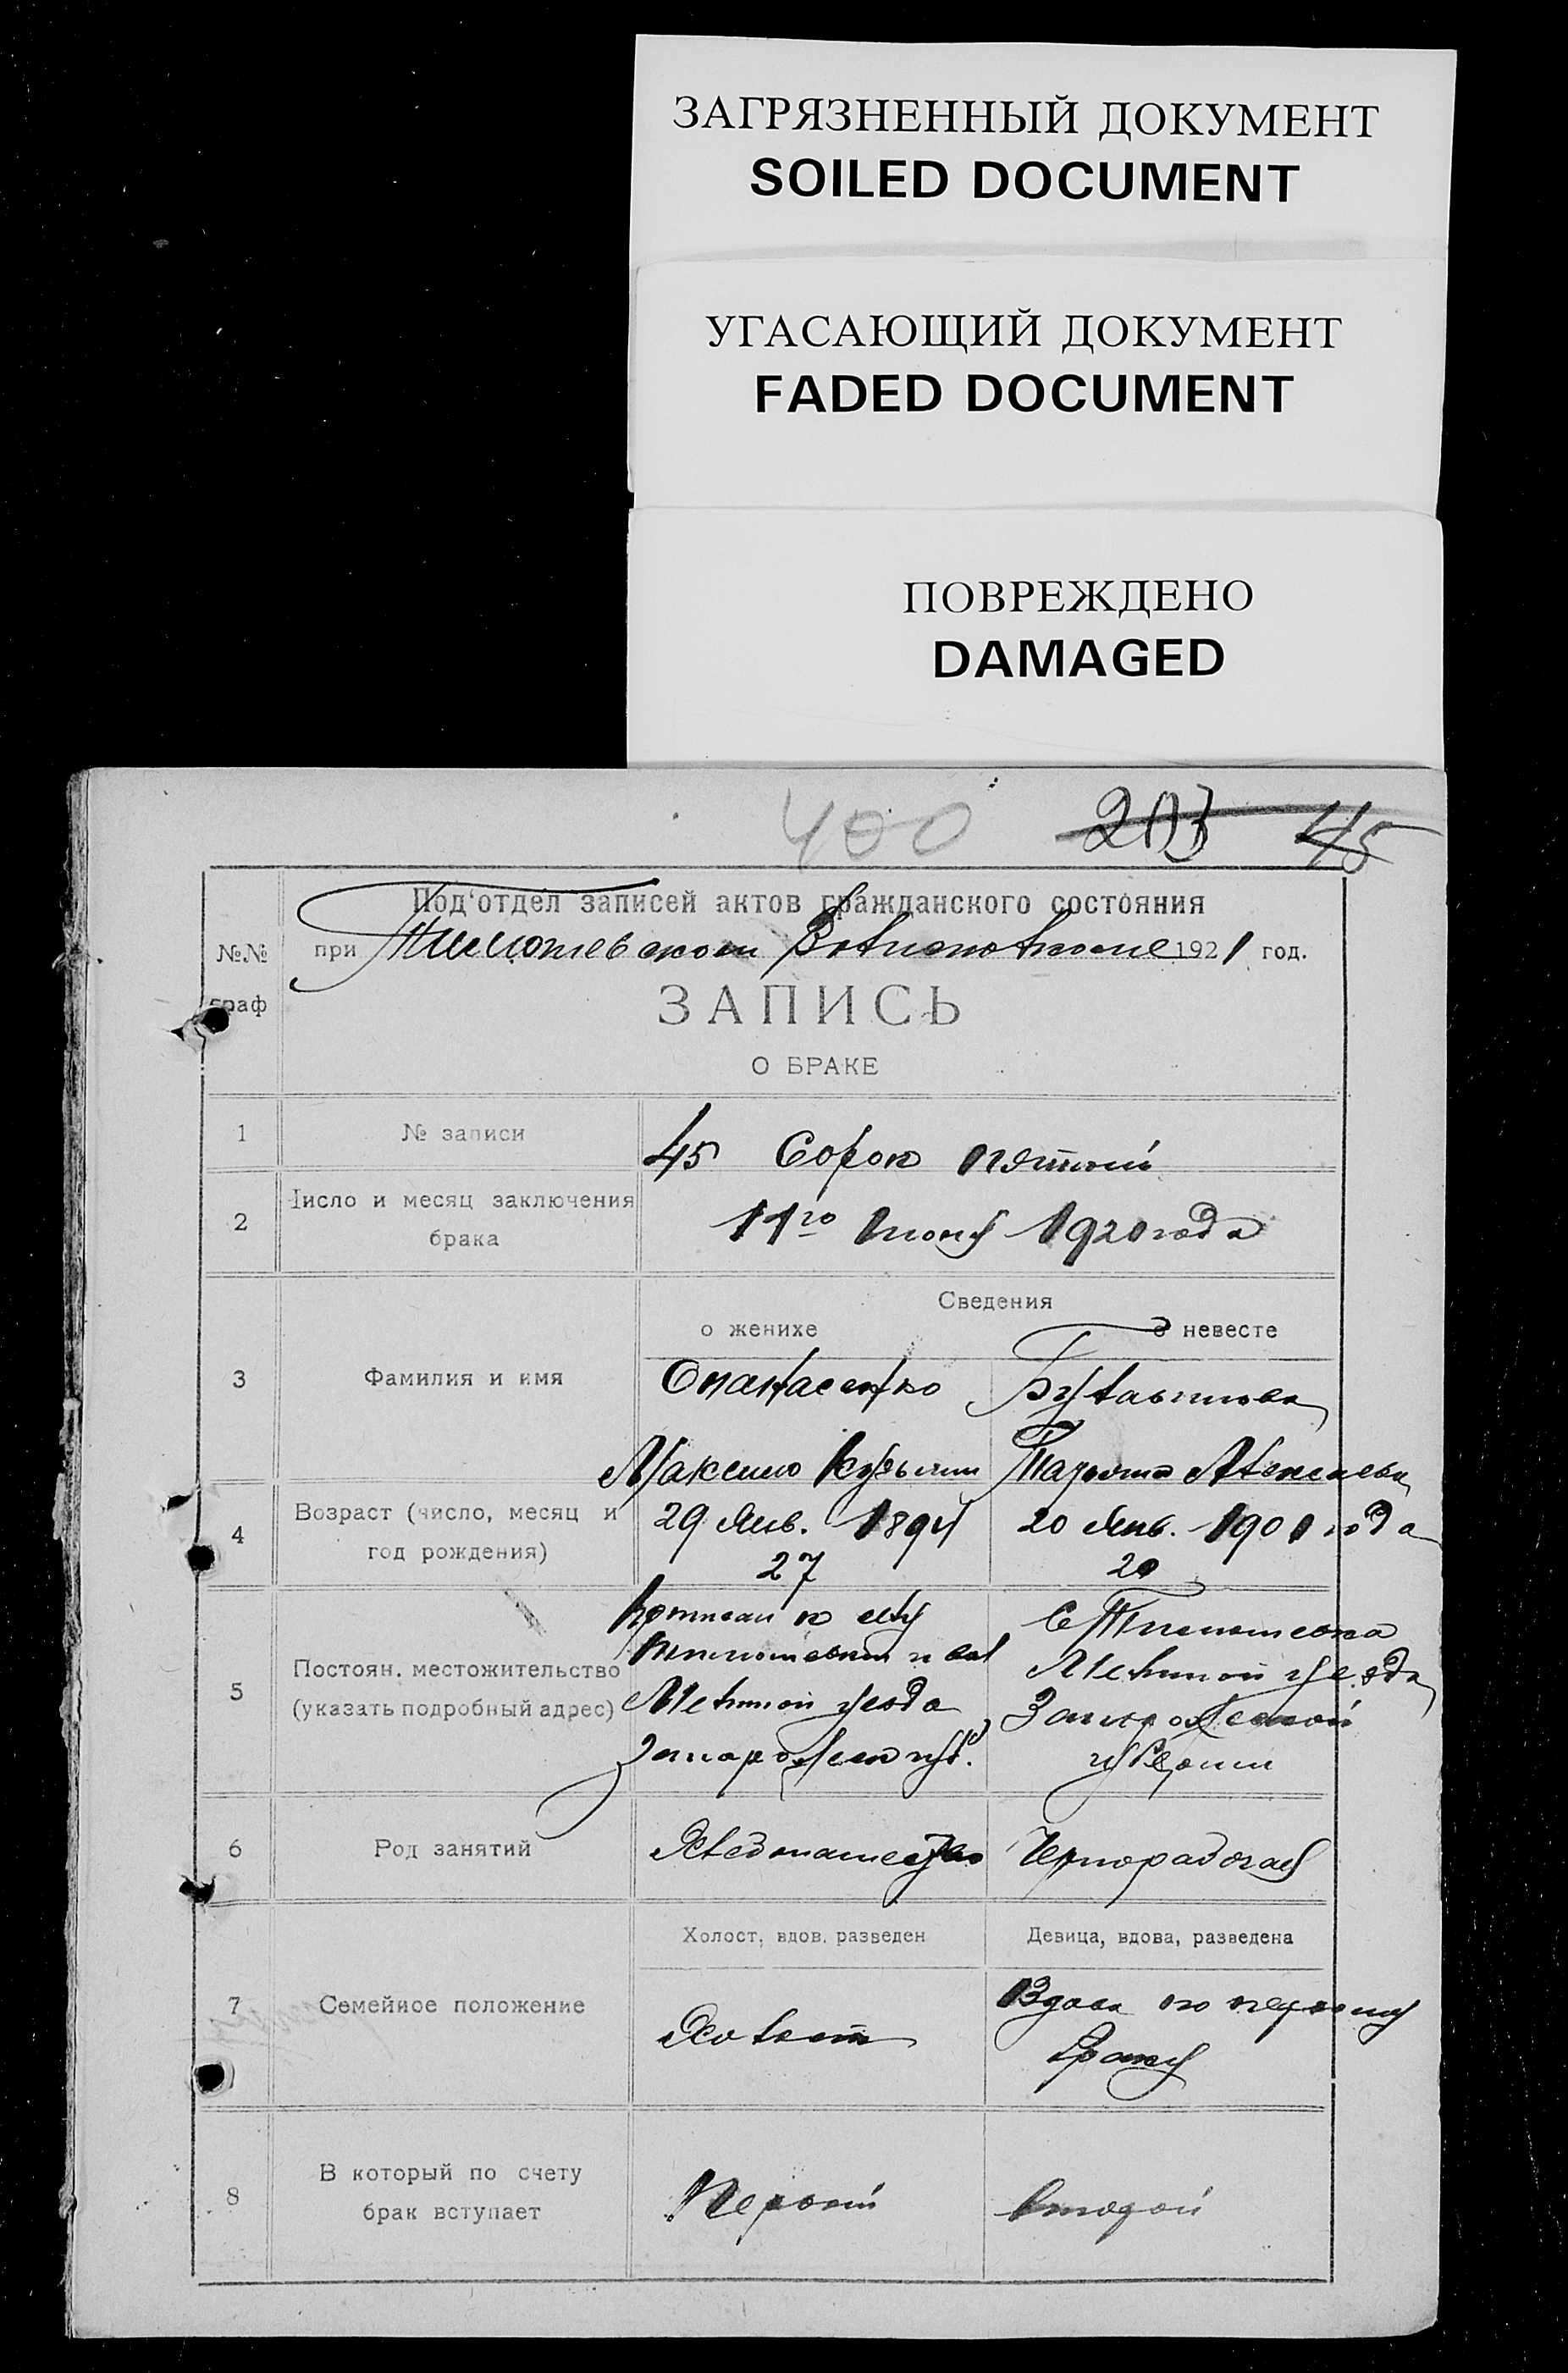 ЗАГРЯЗНЕННЫЙ ДОКУМЕНТ
SOILED DOCUMENT
УГАСАЮЩИЙ ДОКУМЕНТ
FADED DOCUMENT
ПОВРЕЖДЕНО
DAMAGED
400 203 45
Под'отдел записей актов гражданского состояния
№№ граф
при Тимошевском Волисполкоме 1921 год.
ЗАПИСЬ
О БРАКЕ
1 № записи 45 Сорок пятый
2 Число и месяц заключения
брака
11го Июня 1921 года
Сведения
о женихе о невесте
3 Фамилия и имя
Опанасенко
Максим Кузьмич
Алексеева
4 Возраст (число, месяц и
год рождения)
29 Янв. 1894 20 Янв. 1901 года
27 20
5 Постоян. местожительство
(указать подробный адрес)
селу
Тимошевки
Мелитоп уезда
Запорожск губ.
С Тимошевка
Мелитоп уезда
Запорожской
губернии
6 Род занятий
Хлебопашество Чернорабочая
Холост, вдов, разведен Девица, вдова, разведена
7 Семейное положение
Холост
Вдова по первому
браку
8 В который по счету
брак вступает
Первый второй